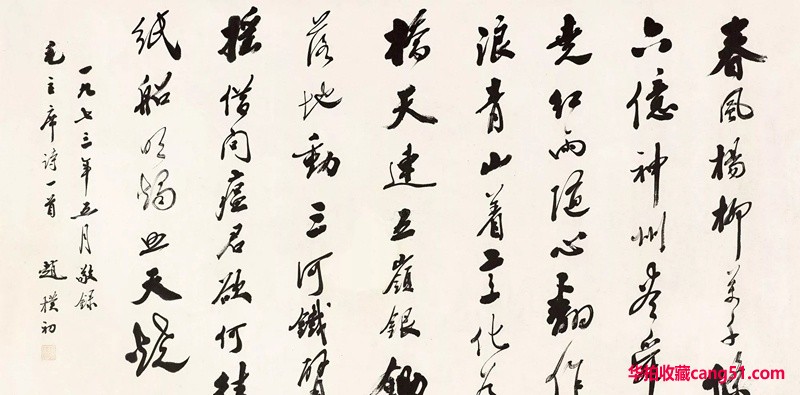 春風楊柳萬千條
六億神州盡舜
堯紅雨隨心翻作
浪青山着意化為
橋天連五嶺銀鋤
落地動三河鐵臂
搖借問瘟君欲何往
紙船明燭照天燒
一九七三年五月敬錄
毛主席詩一首 趙樸初
华拍收藏cang51.com